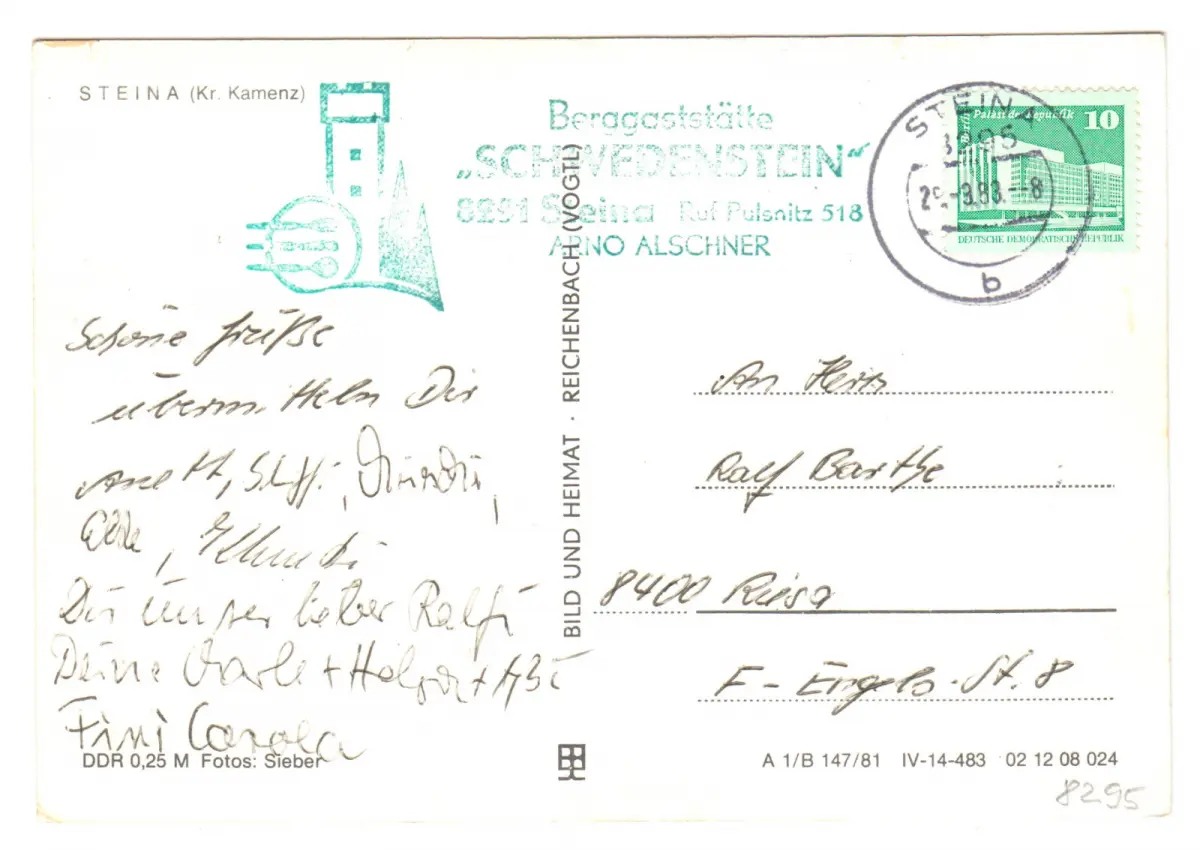 STEINA (Kr. Kamenz)
Berggaststätte
„SCHWEDENSTEIN“
8291 Steina Ruf Pulsnitz 518
ARNO ALSCHNER
STEINA
8295
29.-9.83.--8
b
Berlin Palast der Republik 10
DEUTSCHE DEMOKRATISCHE REPUBLIK
Schöne Grüße
übermitteln Dir
Anett, Steffi,
Dir unser lieber Ralfi
Deine + Helga +
Fini Carola
BILD UND HEIMAT · REICHENBACH (VOGTL)
An Herrn
Ralf Barthe
8400 Riesa
F-Engels-St. 8
DDR 0,25 M Fotos: Sieber
A 1/B 147/81 IV-14-483 02 12 08 024
8295